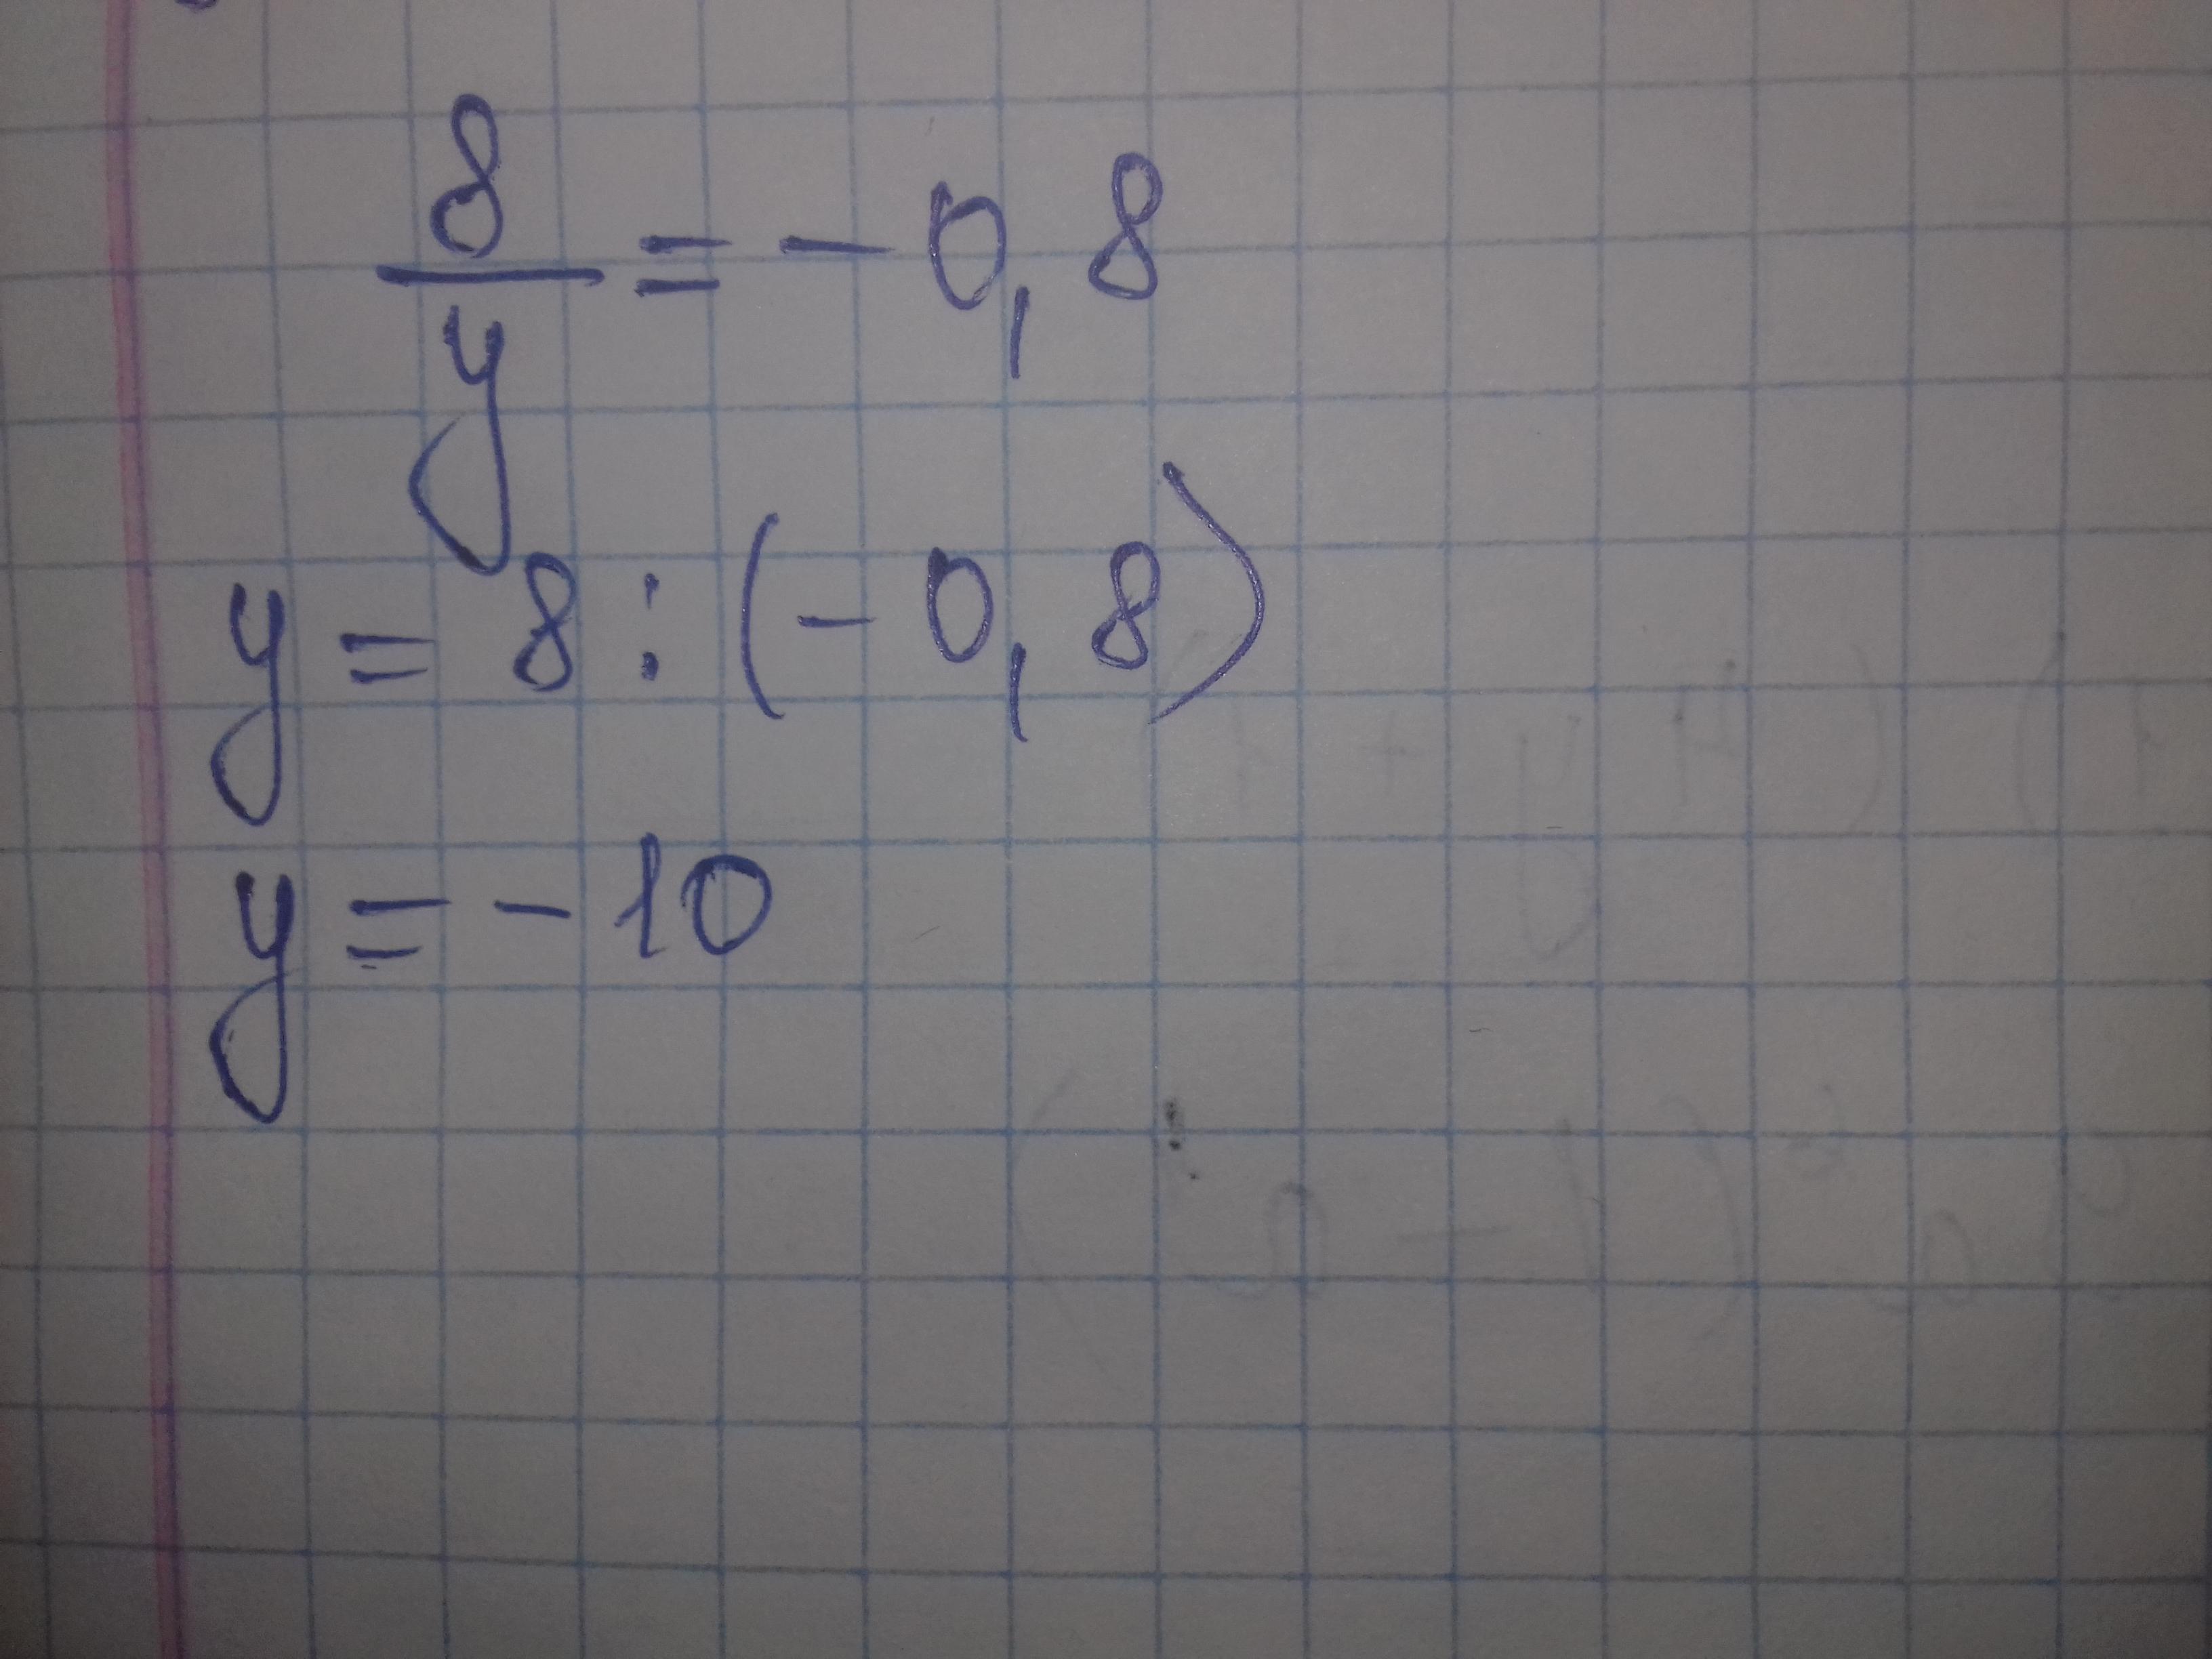 8/y = -0,8
y = 8 : (-0,8)
y = -10